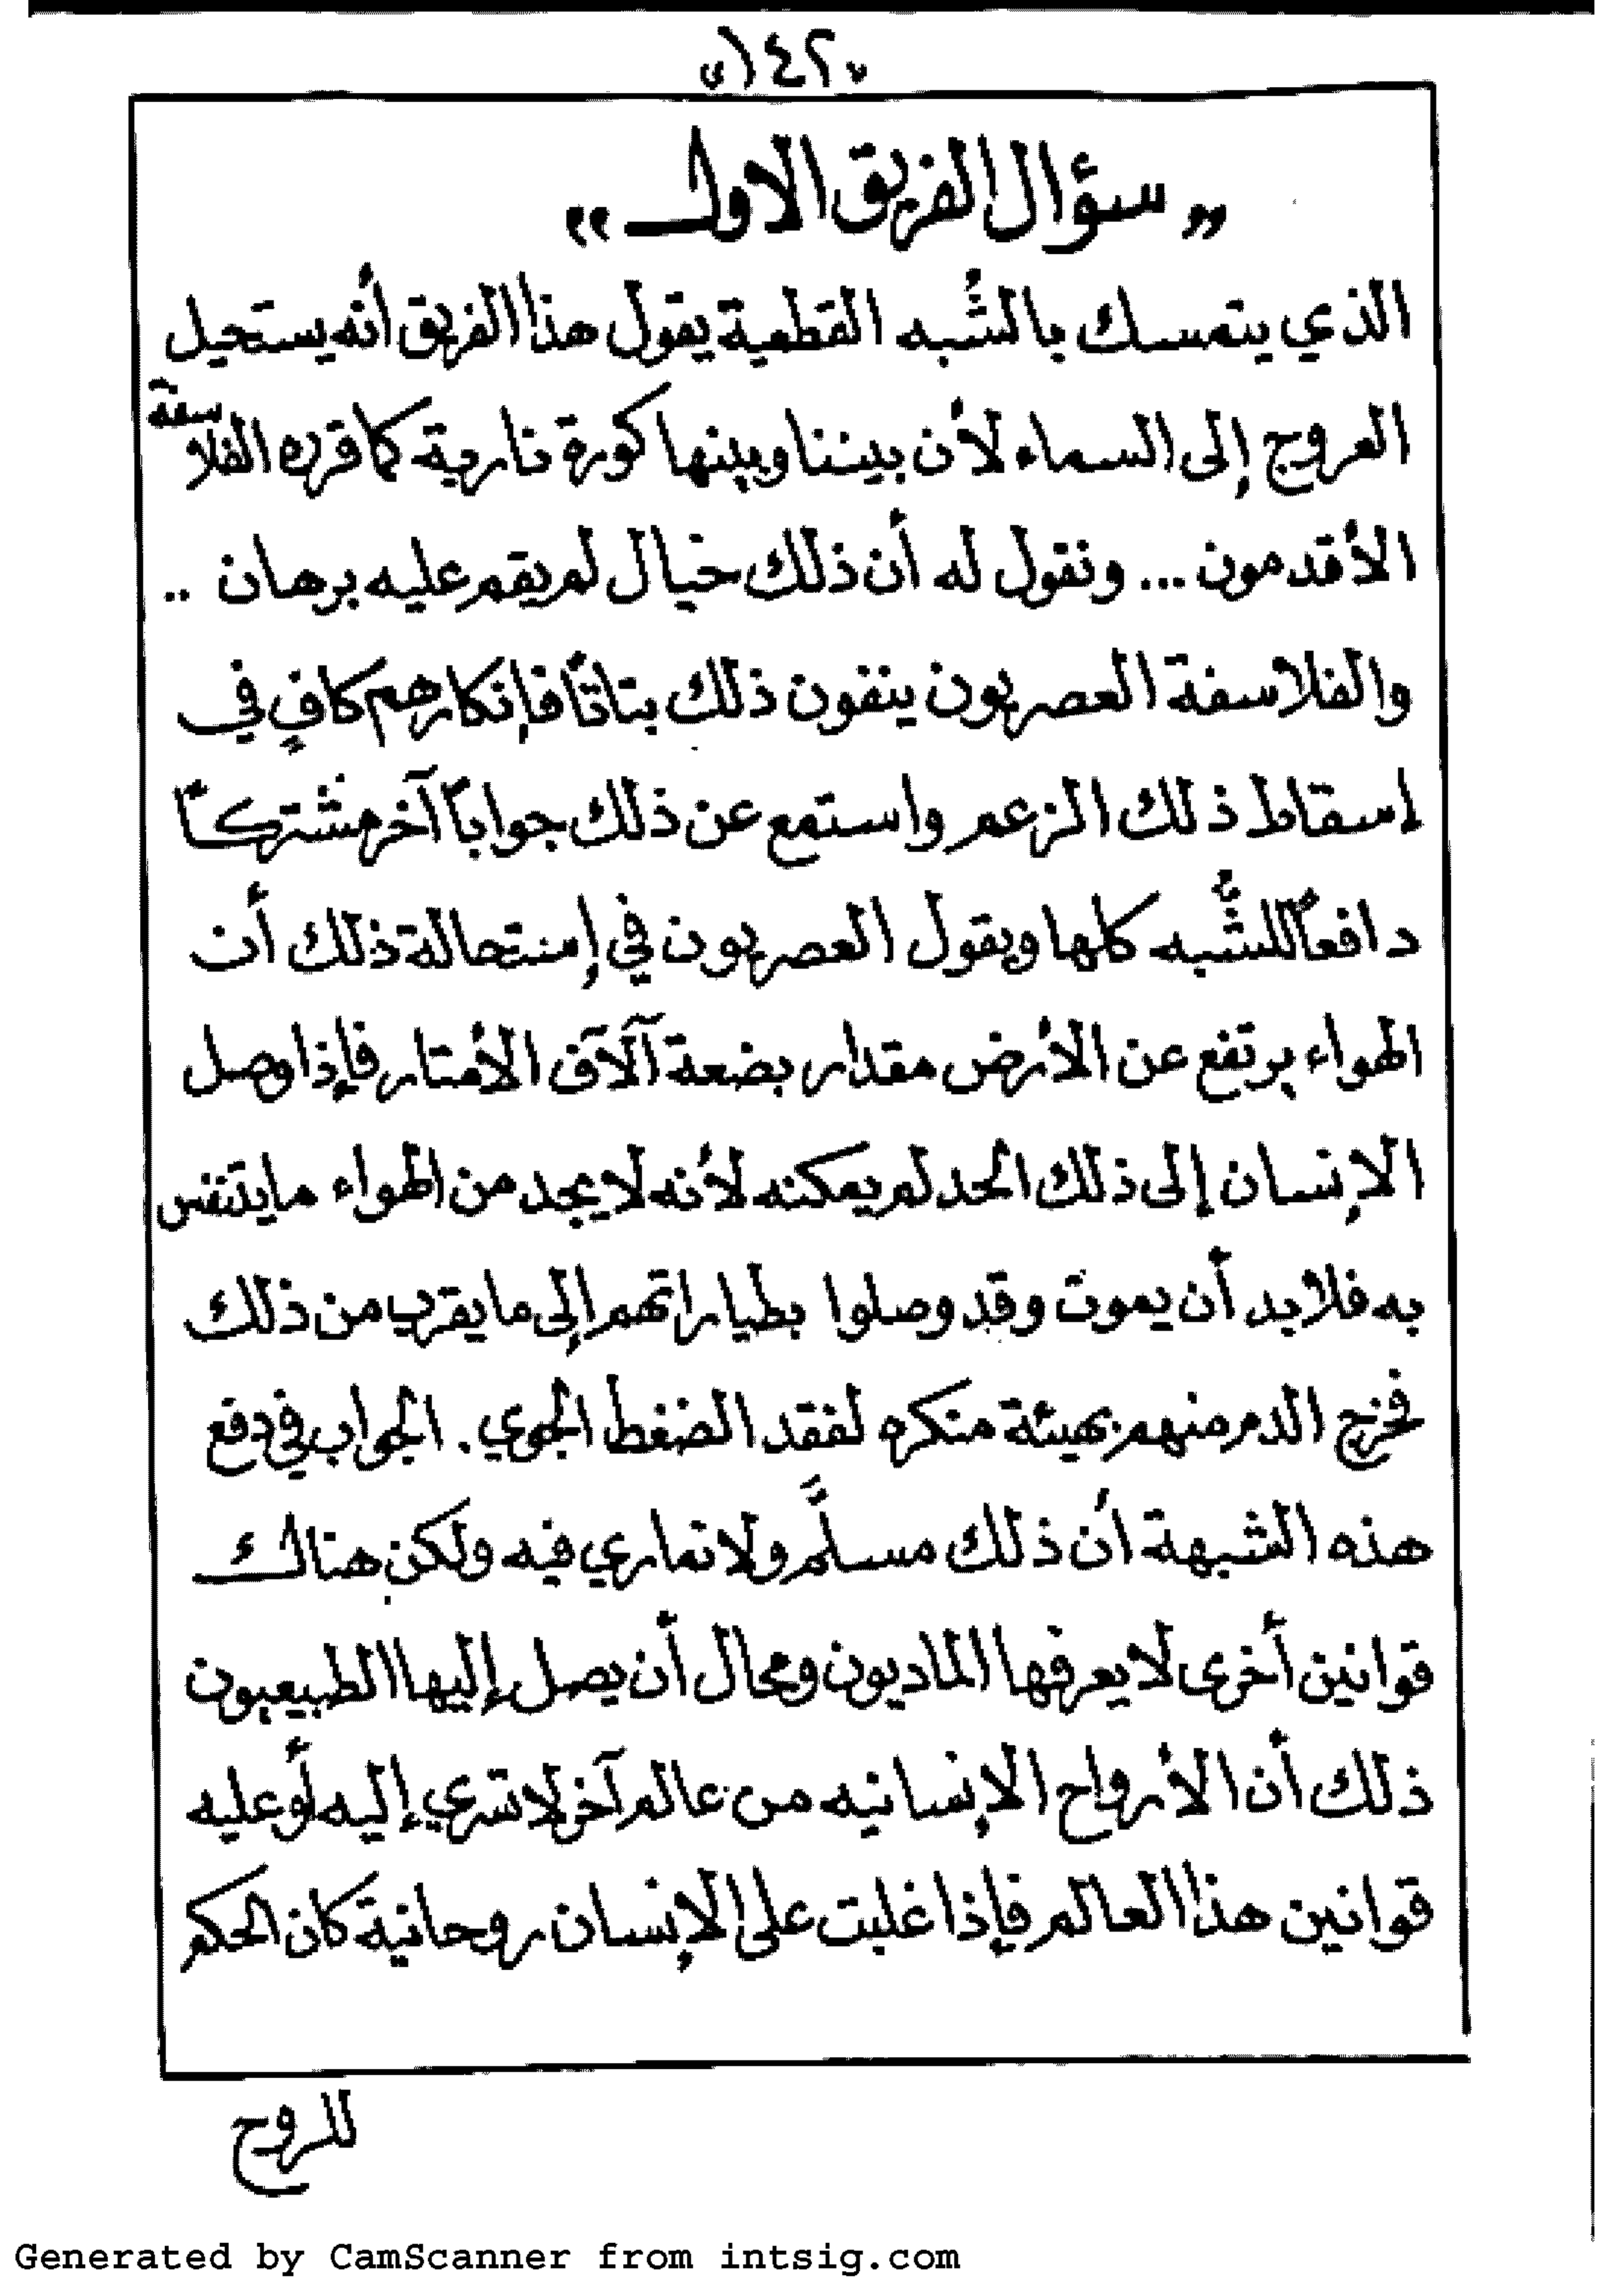 «١٤٢»
„ سؤال الفريق الاول „
الذي يتمسك بالشُّبه القطعية يقول هذا الفريق أنه يستحيل
العروج إلى السماء لأن بيننا وبينها كورة نارية كما قرره الفلاسفة
الأقدمون ... ونقول له أن ذلك خيال لم يقم عليه برهان ..
والفلاسفة العصريون ينفون ذلك بتاتاً فإنكارهم كافٍ في
إسقاط ذلك الزعم واستمع عن ذلك جواباً آخر مشتركاً
دافعاً للشُّبه كلها ويقول العصريون في إستحالة ذلك أن
الهواء يرتفع عن الأرض مقدار بضعة آلآف الأمتار فإذا وصل
الإنسان إلى ذلك الحد لم يمكنه لأنه لا يجد من الهواء ما يتنفس
به فلابد أن يموت وقد وصلوا بطياراتهم إلى ما يقرب من ذلك
فخرج الدم منهم بهيئة منكره لفقد الضغط الجوي . الجواب في دفع
هذه الشبهة أن ذلك مسلَّم ولا نماري فيه ولكن هناك
قوانين أخرى لا يعرفها الماديون ومحال أن يصل إليها الطبيعيون
ذلك أن الأرواح الإنسانيه من عالم آخر لا تسري إليه أو عليه
قوانين هذا العالم فإذا غلبت على الإنسان روحانية كان الحكم
للروح
Generated by CamScanner from intsig.com